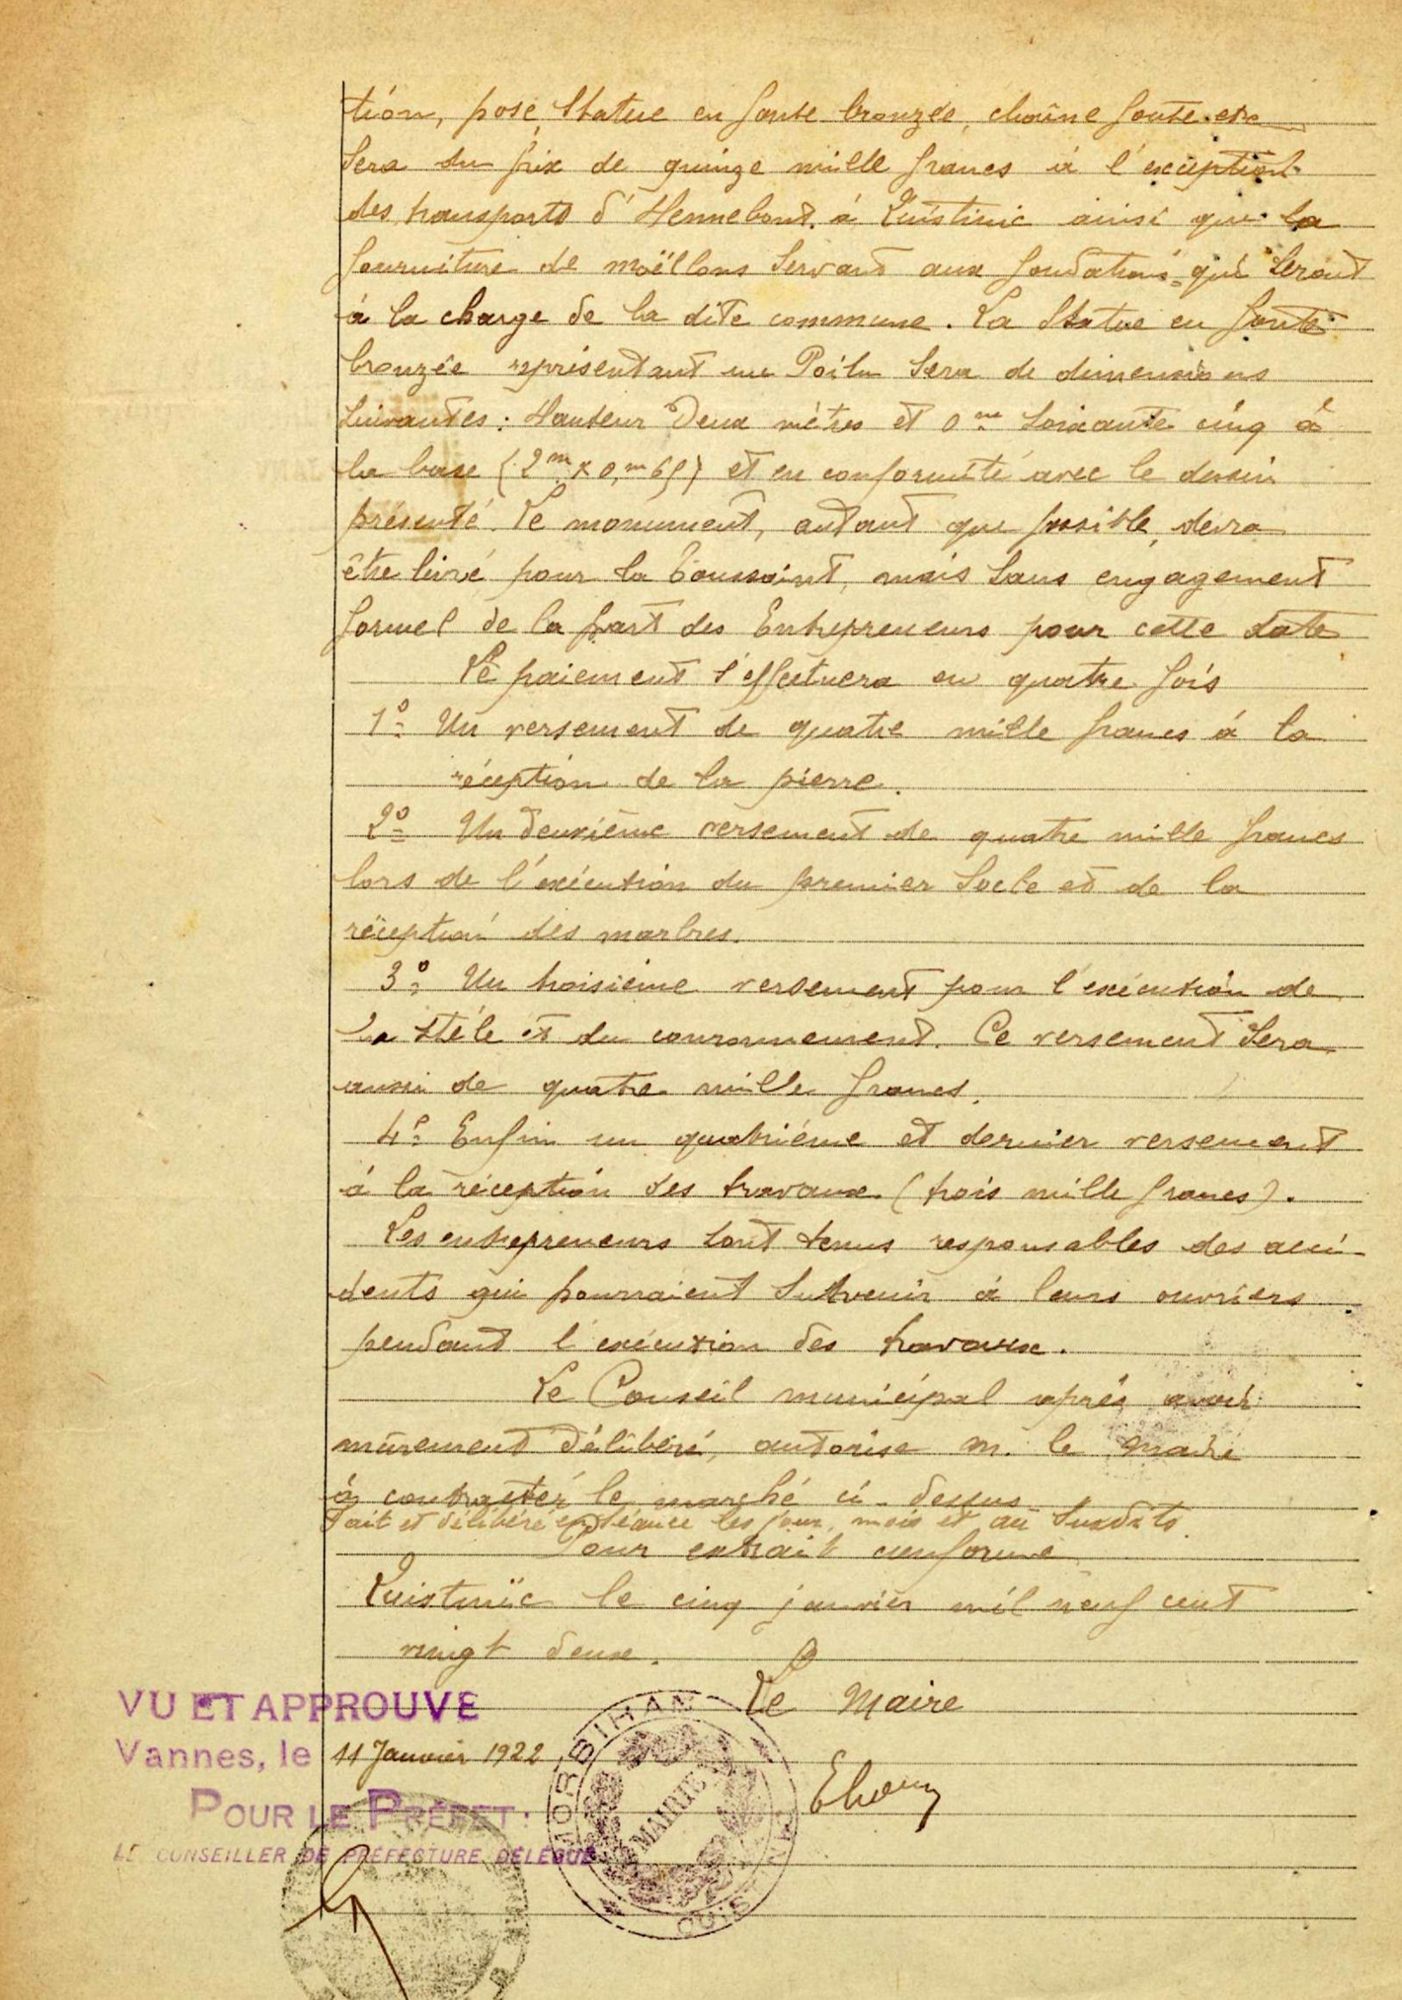 tion, pose Statue en fonte bronzée, chaîne fonte etc
Sera du prix de quinze mille francs à l'exception
des transports d'Hennebont à Quistinic ainsi que la
fourniture de moëllons Servant aux fondations qui Seront
à la charge de la dite commune. La Statue en fonte
bronzée représentant un Poilu Sera de dimensions
Suivantes : Hauteur Deux mètres et 0m Soixante cinq à
la base (2m x 0,m65) et en conformité avec le dessin
présenté. Le monument, autant que possible, devra
être livré pour la Toussaint, mais Sans engagement
formel de la part des Entrepreneurs pour cette date
Le paiement S'effectuera en quatre fois
1º Un versement de quatre mille francs à la
réception de la pierre.
2º Un deuxième versement de quatre mille francs
lors de l'exécution du premier Socle et de la
réception des marbres.
3º Un troisième versement pour l'exécution de
la stèle et du couronnement. Ce versement Sera
aussi de quatre mille francs.
4º Enfin un quatrième et dernier versement
à la réception des travaux (trois mille francs).
Les entrepreneurs Sont tenus responsables des acci-
dents qui pourraient Survenir à leurs ouvriers
pendant l'exécution des travaux.
Le Conseil municipal après avoir
mûrement délibéré, autorise M. le Maire
à contracter le marché ci-dessus
Fait et délibéré en Séance les jour, mois et an Susdits
Pour extrait conforme
Quistinic le cinq janvier mil neuf cent
vingt deux.
Le Maire
VU ET APPROUVE
Vannes, le 11 Janvier 1922
POUR LE PRÉFET:
LE CONSEILLER DE PRÉFECTURE DÉLÉGUÉ
MORBIHAN
MAIRIE